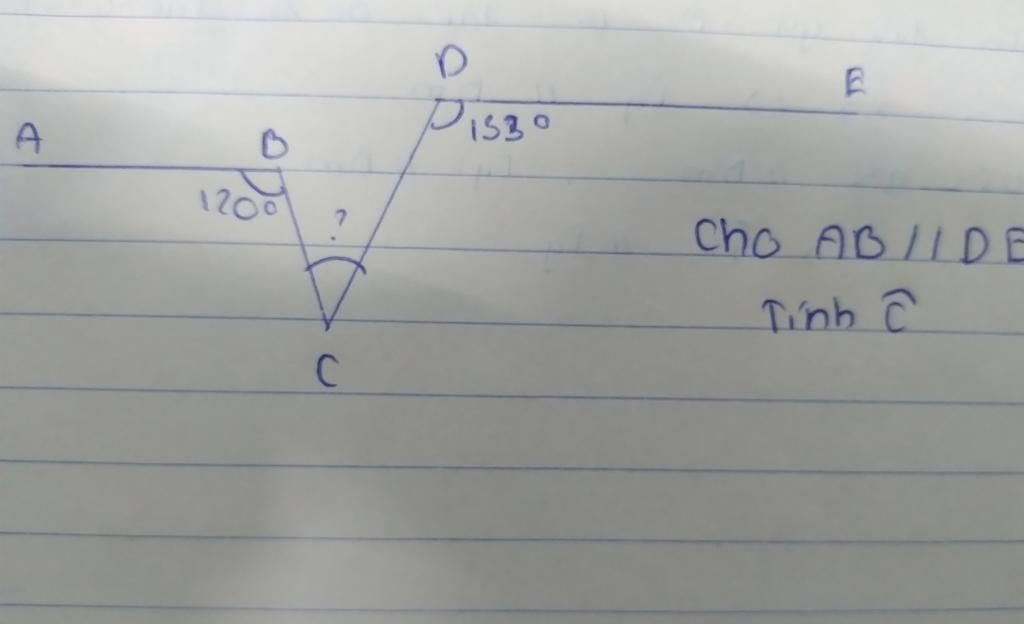 D
E
A
B
153°
120°
?
Cho AB // DE
Tính Ĉ
C